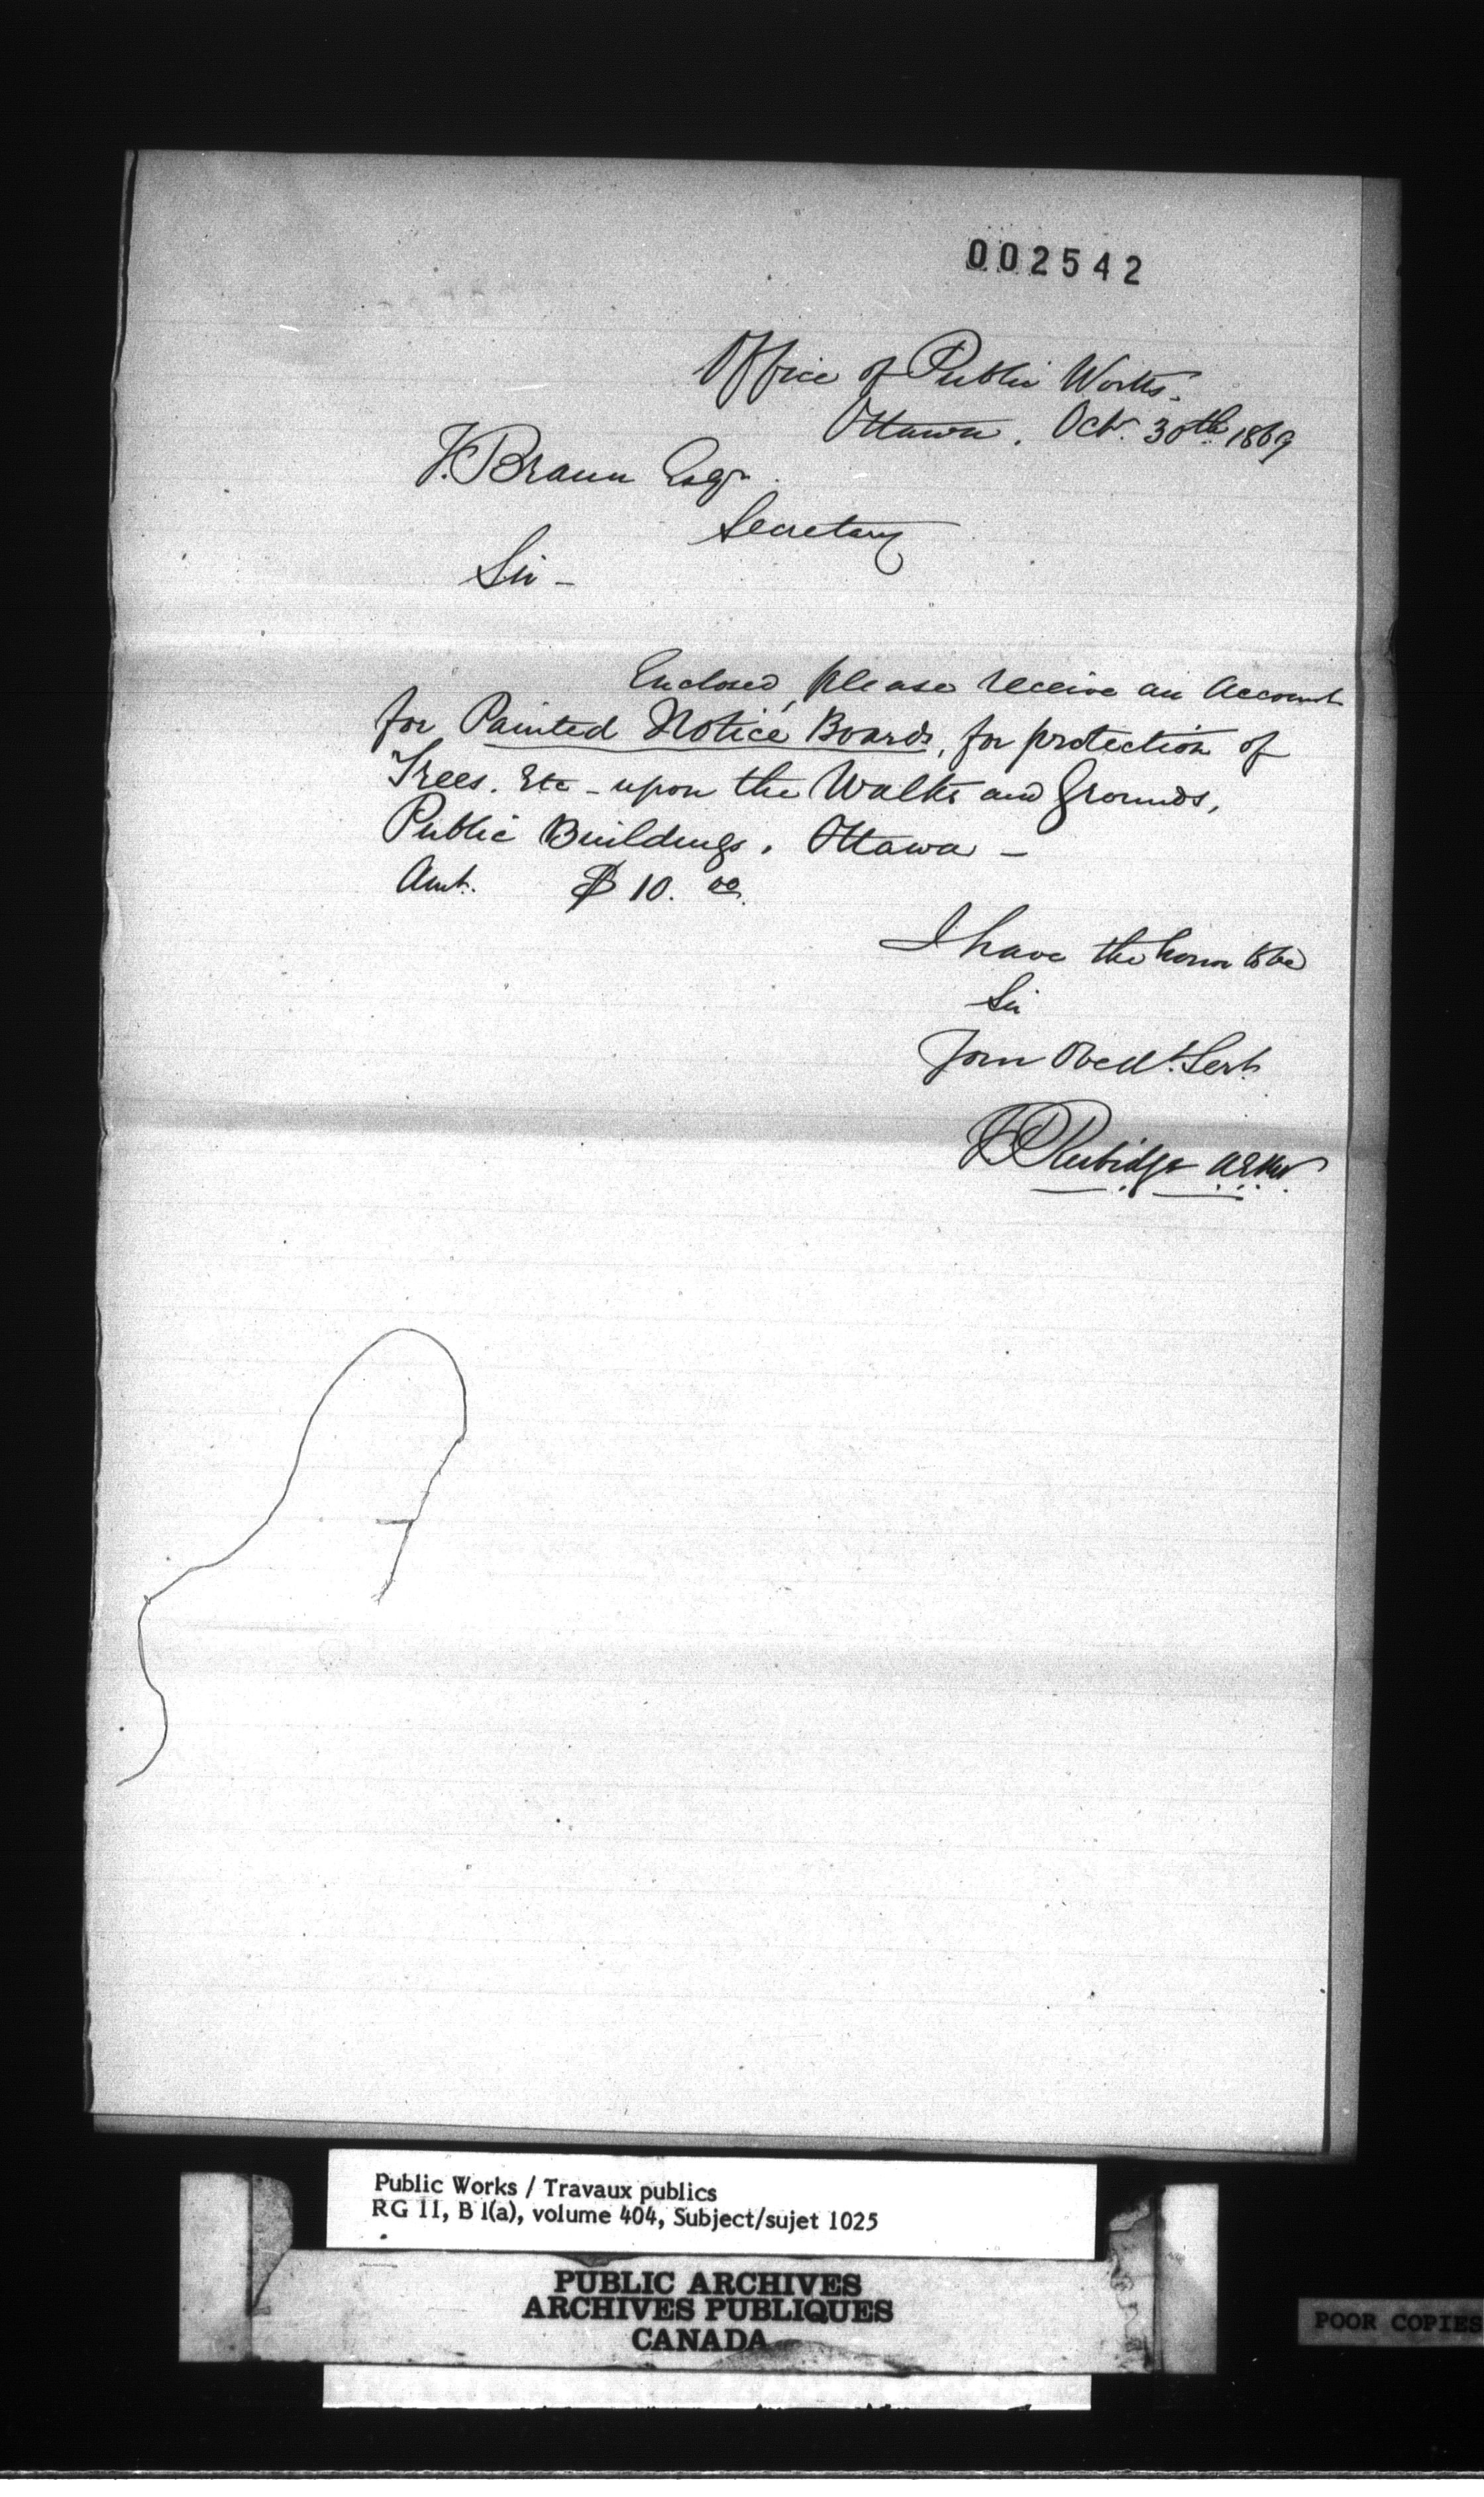 002542
Office of Public Works.
Ottawa. Oct. 30th 1869
F. Braun Esqr.
Secretary
Sir -
Enclosed, please receive an Account
for Painted Notice Boards, for protection of
Trees. Etc - upon the Walks and Grounds,
Public Buildings. Ottawa -
Amt. $10.00
I have the honor to be
Sir
Your Obedt. Servt.
F.P. Rubidge
Public Works / Travaux publics
RG 11, B 1(a), volume 404, Subject/sujet 1025
PUBLIC ARCHIVES
ARCHIVES PUBLIQUES
CANADA
POOR COPIES